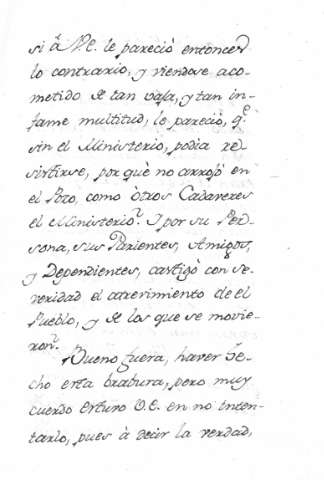 si â V.E. le pareciò entonces
lo contrario, y viendose aco-
metido de tan vaja, y tan in-
fame multitud, le pareciò, q.e
sin el Ministerio, podia re-
sistirse, por què no arrojò en
el Pozo, como òtros Cadaveres
el Ministerio? I por su Per-
sona, sus Parientes, Amigos,
y Dependientes, castigò con se-
veridad el atrevimiento de el
Pueblo, y de los que se movie-
ron?
Bueno fuera, haver he-
cho esta brabura, pero muy
cuerdo estuvo V.E. en no inten-
tarlo, pues à decir la verdad,